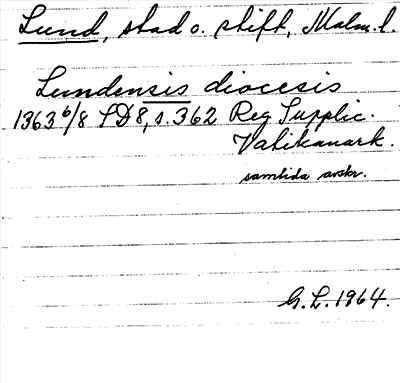 Lund, stad o. stift, Malm. l.
Lundensis diocesis
1363 6/8 SD 8, s. 362 Reg. Supplic.
Vatikanark.
samtida avskr.
G. L. 1964.